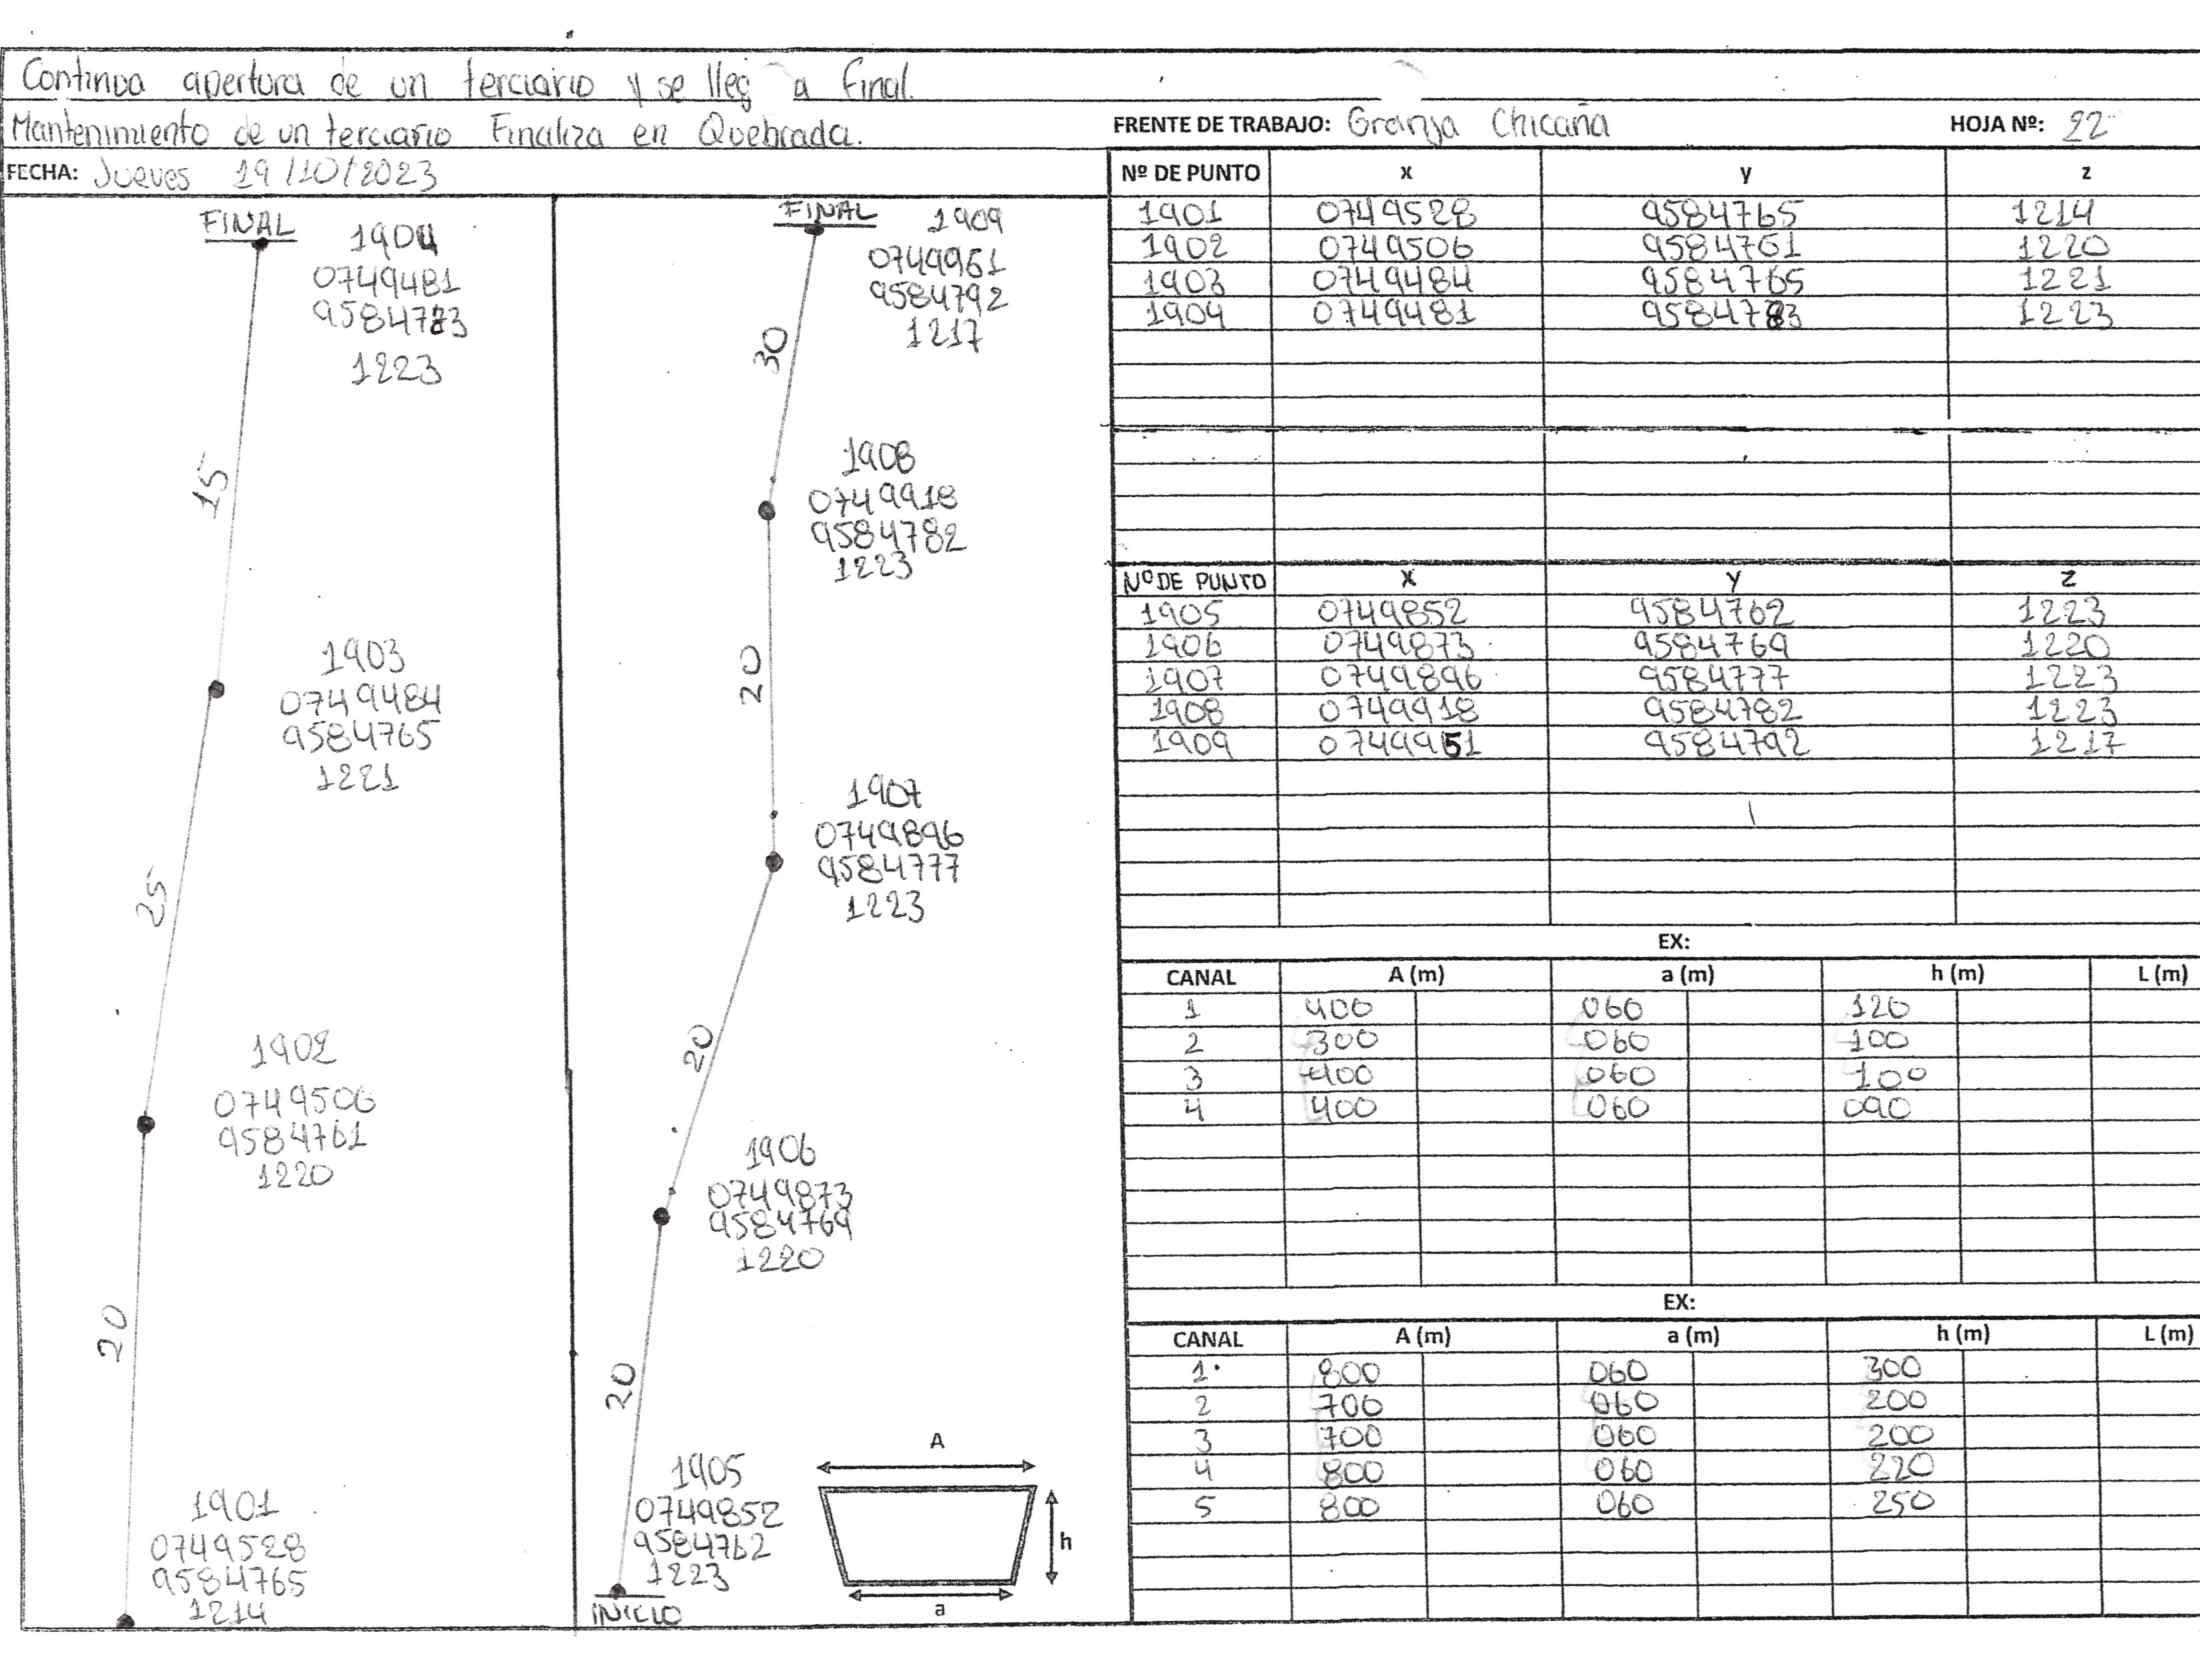 Continua apertura de un terciario y se lleg a final.
Mantenimiento de un terciario Finaliza en Quebrada.
FRENTE DE TRABAJO: Granja Chicaña
HOJA Nº: 22
FECHA: Jueves 19/10/2023
FINAL
1904
0749481
9584783
1223
15
1903
0749484
9584765
1221
25
1902
0749506
9584761
1220
20
1901
0749528
9584765
1214
FINAL
1909
0749951
9584792
1217
30
1908
0749918
9584782
1223
20
1907
0749896
9584777
1223
20
1906
0749873
9584769
1220
20
1905
0749852
9584762
1223
INICIO
A
h
a
Nº DE PUNTO x y z
1901 0749528 9584765 1214
1902 0749506 9584761 1220
1903 0749484 9584765 1221
1904 0749481 9584783 1223
Nº DE PUNTO X Y Z
1905 0749852 9584762 1223
1906 0749873 9584769 1220
1907 0749896 9584777 1223
1908 0749918 9584782 1223
1909 0749951 9584792 1217
EX:
CANAL A (m) a (m) h (m) L (m)
1 400 060 120
2 300 060 100
3 400 060 100
4 400 060 090
EX:
CANAL A (m) a (m) h (m) L (m)
1 800 060 300
2 700 060 200
3 700 060 200
4 800 060 220
5 800 060 250